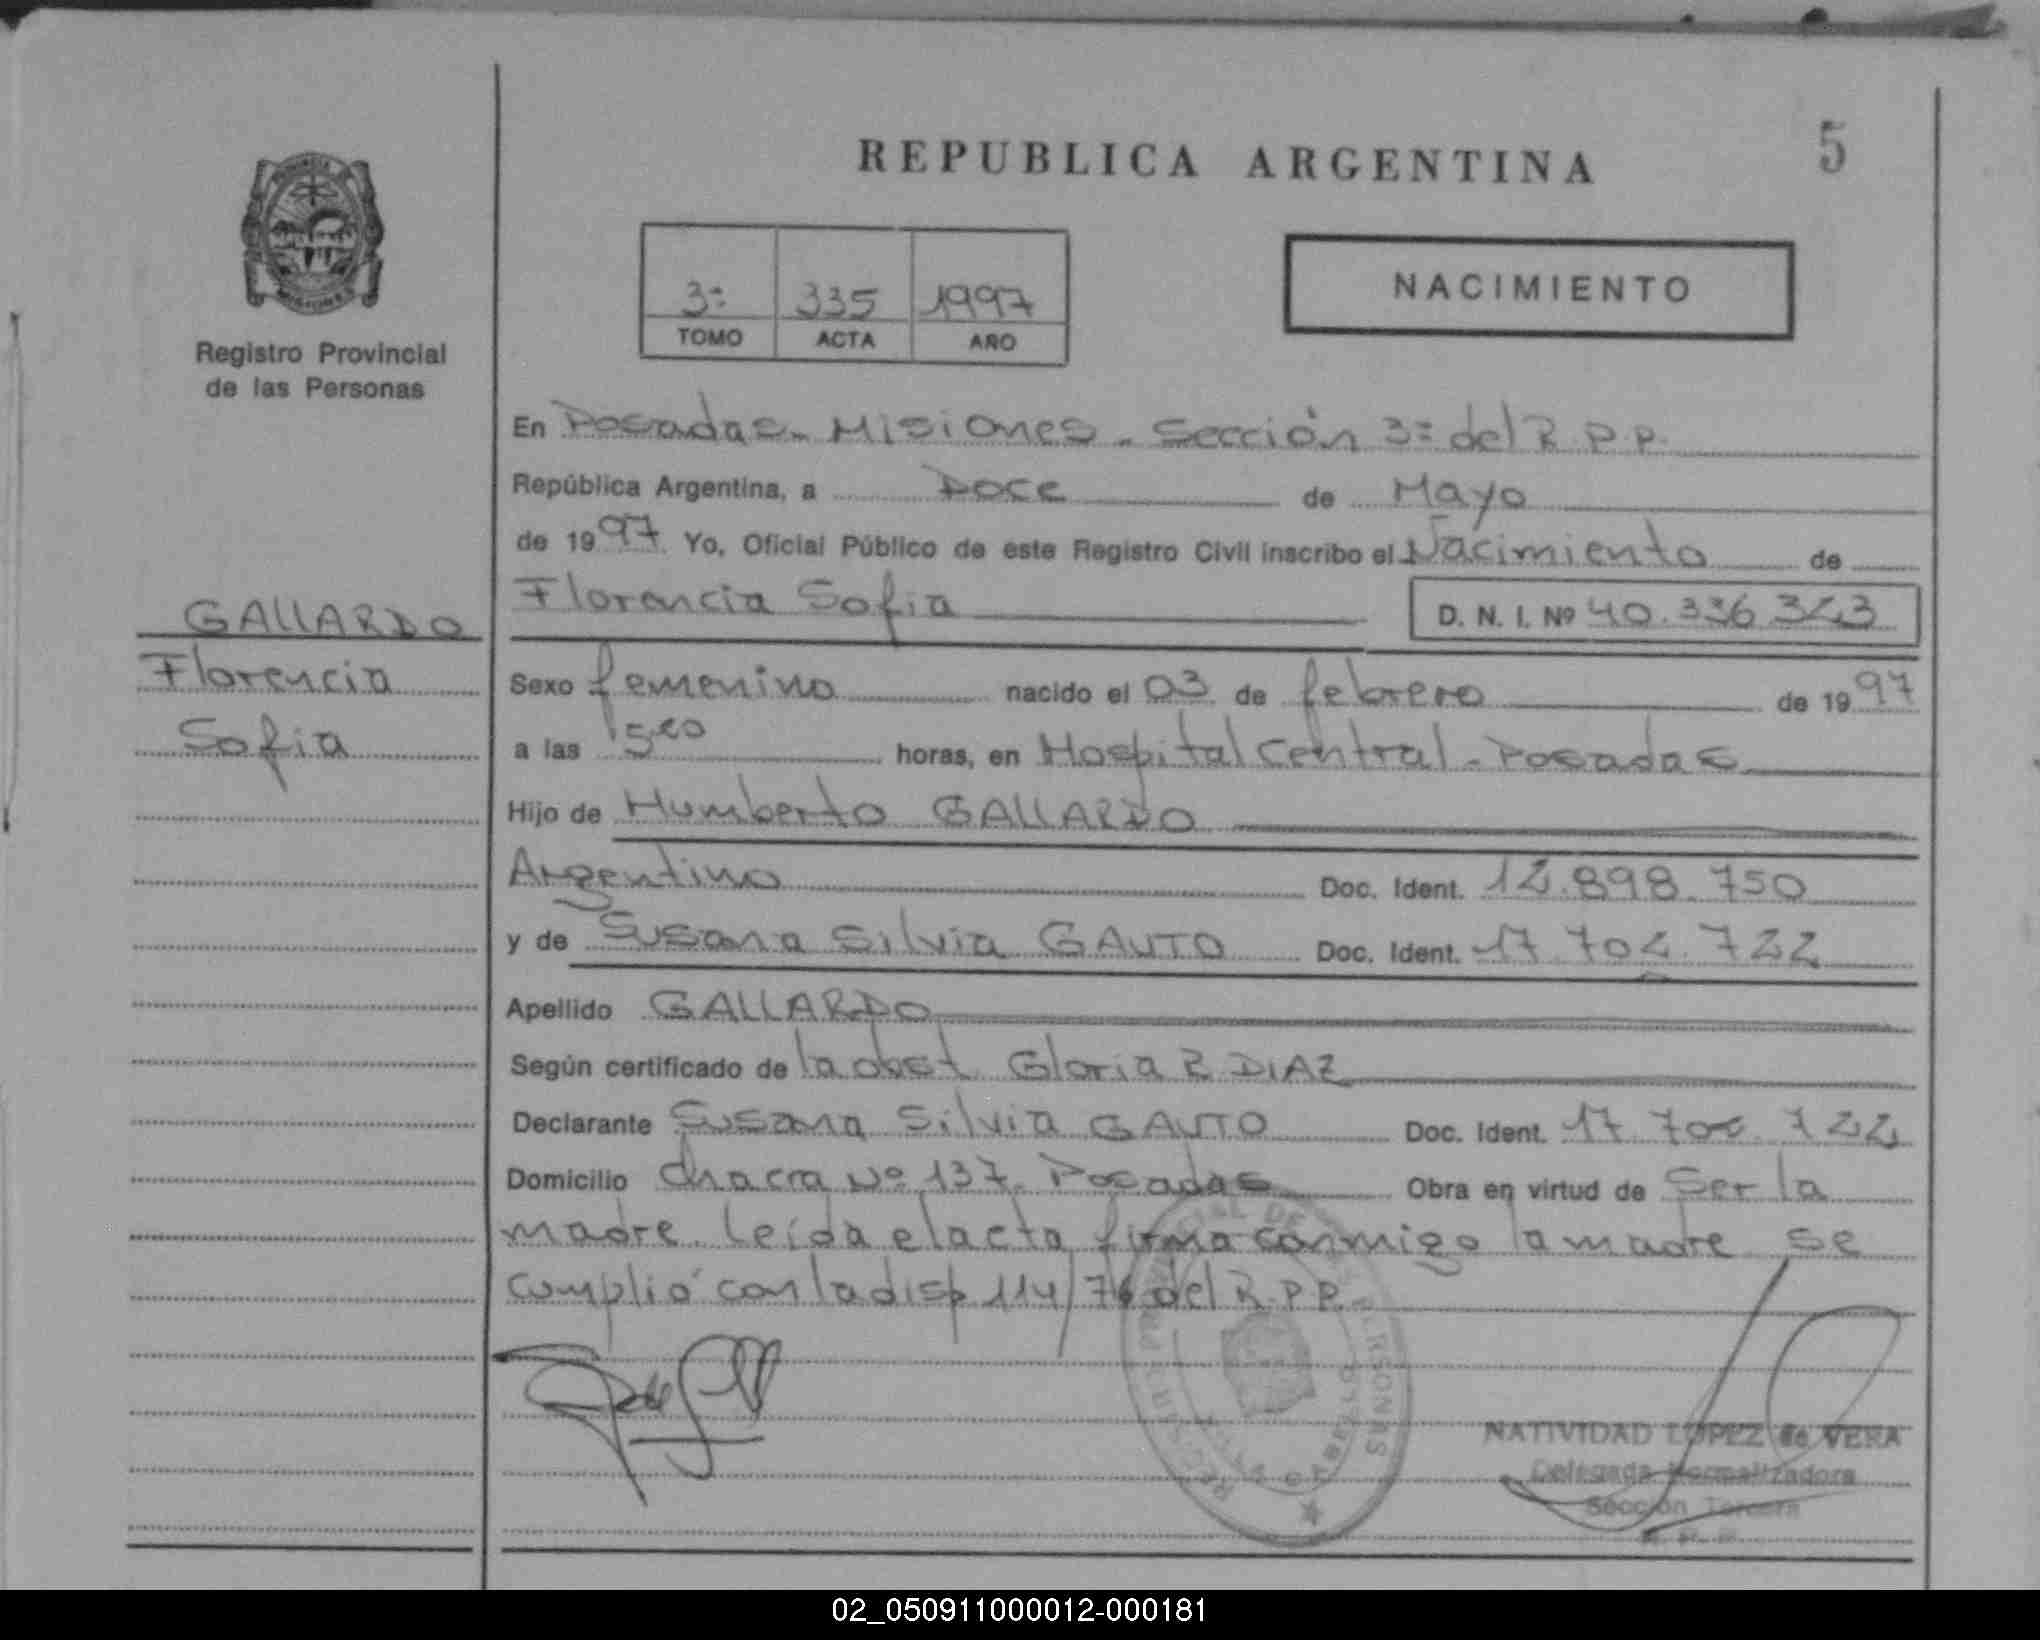 REPUBLICA ARGENTINA
5
Registro Provincial
de las Personas
3ª 335 1997
TOMO ACTA AÑO
NACIMIENTO
En Posadas - Misiones - Sección 3ª del R.P.P.
República Argentina, a Doce de Mayo
de 1997 Yo, Oficial Público de este Registro Civil inscribo el Nacimiento de
Florencia Sofia D. N. I. Nº 40.336.323
GALLARDO
Florencia
Sofia
Sexo femenino nacido el 03 de febrero de 1997
a las horas, en Hospital Central - Posadas
Hijo de Humberto GALLARDO
Argentino Doc. Ident. 12.898.750
y de Susana Silvia GAUTO Doc. Ident. 17.702.722
Apellido GALLARDO
Según certificado de la obst Gloria R DIAZ
Declarante Susana Silvia GAUTO Doc. Ident. 17.702.722
Domicilio Chacra Nº 137 Posadas Obra en virtud de Ser la
madre. Leída el acta firma conmigo la madre se
cumplió con la disp 114/76 del R.P.P.
NATIVIDAD LOPEZ de VERA
Delegada Normalizadora
Sección Tercera
R. P. P.
02_050911000012-000181